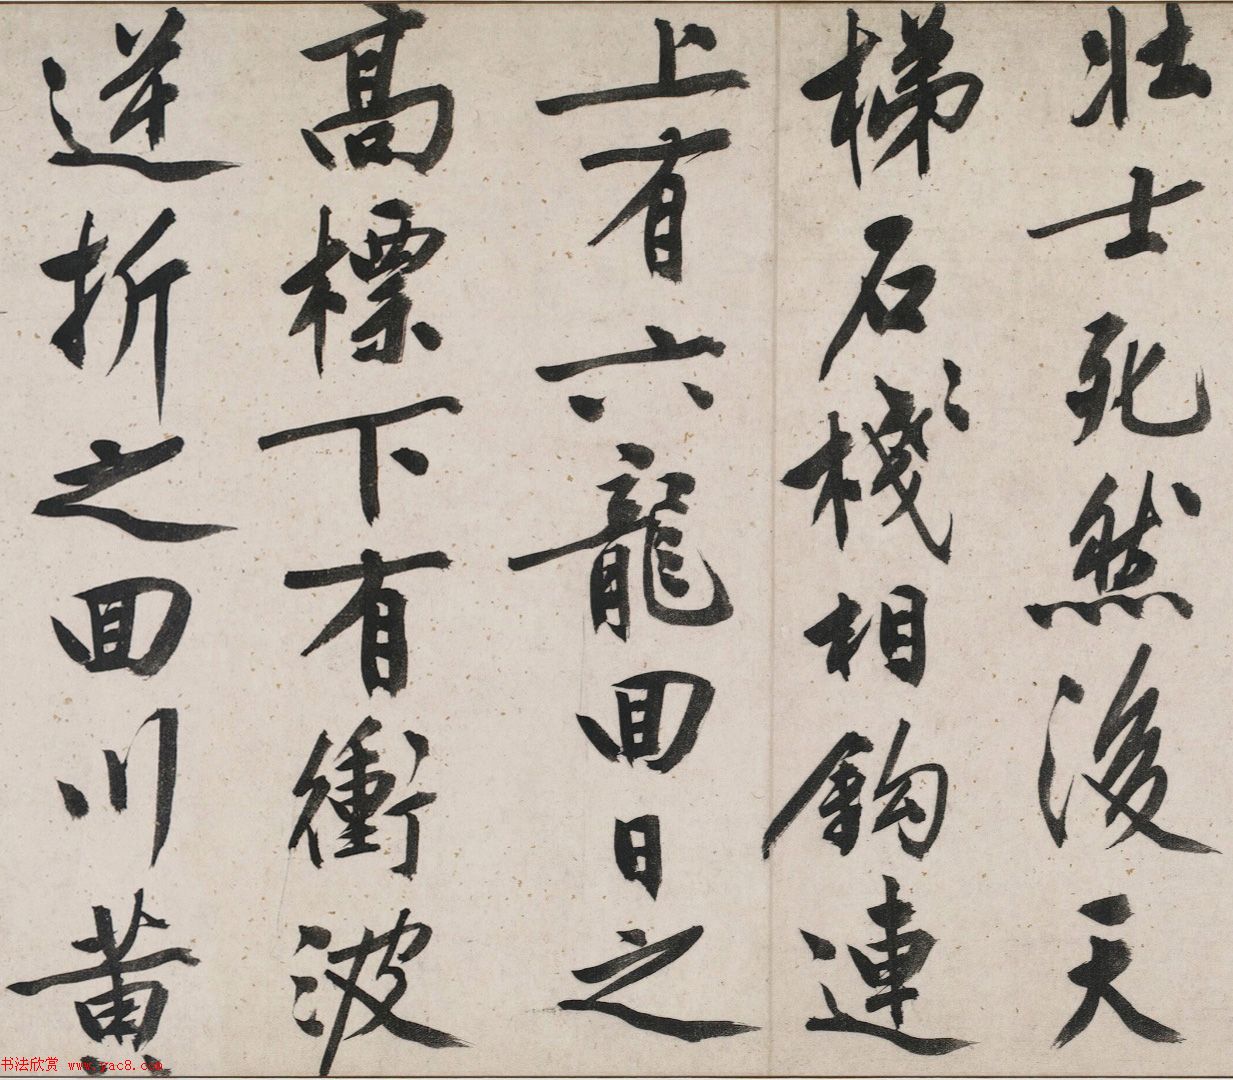 壯士死然後天
梯石棧相鈎連
上有六龍回日之
高標下有衝波
逆折之回川黄
书法欣赏 www.yac8.com